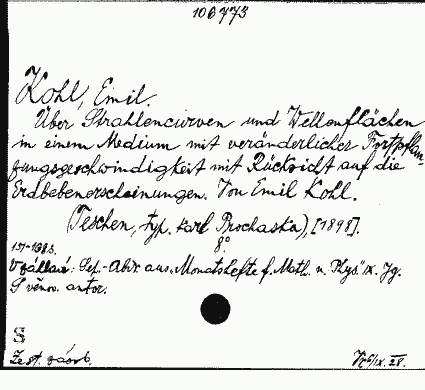 106773
Kohl, Emil.
Über Strahlencurven und Wellenflächen
in einem Medium mit veränderlicher Fortpflan-
zungsgeschwindigkeit mit Rücksicht auf die
Erdbebenerscheinungen. Von Emil Kohl.
(Teschen, typ. Karl Prochaska), [1898].
8°
Sep.-Abdr. aus. Monatshefte f. Math. u. Phys" IX. Jg.
S věnov. autor.
S